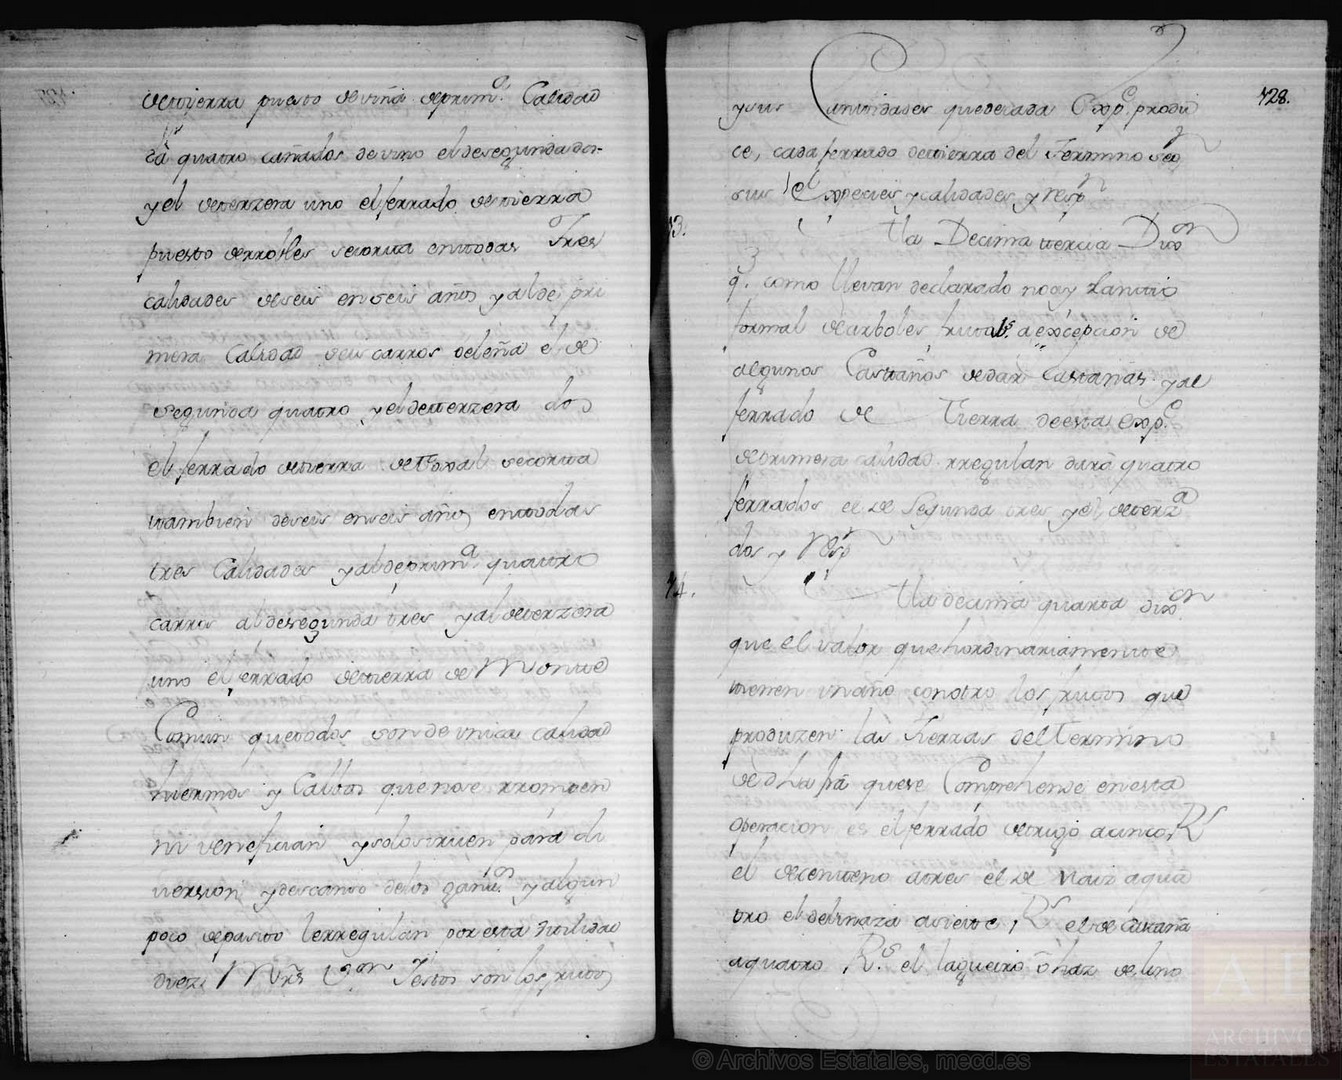 de tierra puesto de viña de prim.ª Calidad
quatro cañados de vino el de segunda dos
y el de terzera uno el ferrado de tierra
puesto de robles se corta en todas Tres
calidades de seis en seis años y al de pri
mera Calidad seis carros de leña el de
segunda quatro y el de terzera dos
el ferrado de tierra de Toxal se corta
tambien de seis en seis años en todas
tres Calidades y al de prim.ª quatro
carros al de segunda tres y al de terzera
uno el ferrado de tierra de Monte
Comun que todos son de unica calidad
hiermos y Calbos que no se rrompen
ni venefician y solo siruen para di
version y descanso de los ganos. y algun
poco de pasto le rregulan por esta utilidad
diez Mrs. Von. Y estos son los frutos
728.
y sus Cantidades que de cada Expe. produ
ce, cada ferrado de tierra del Termino seg
sus Especies y calidades y resp
13.
A la Decima tercia Dixon
q. como llevan declarado no ay Plantio
formal de arboles frutals. a excepcion de
algunos Castaños de dar Castañas y al
ferrado de Tierra de esta Expe.
de primera calidad rregulan dará quatro
ferrados el de Segunda tres y el de terza
dos y Resp
14.
A la decima quarta dixon
que el valor que hordinariamente
tienen un año con otro los frutos que
produzen las Tierras del Termino
de dha fra que se Comprehende en esta
Operacion es el ferrado de trigo a cinco Rs
el de centeno a tres el de Maiz a qua
tro el de linaza a siete Rs el de Castaña
a quatro Rs. el lagueiro o haz de lino
© Archivos Estatales, mecd.es
AE
ARCHIVOS
ESTATALES